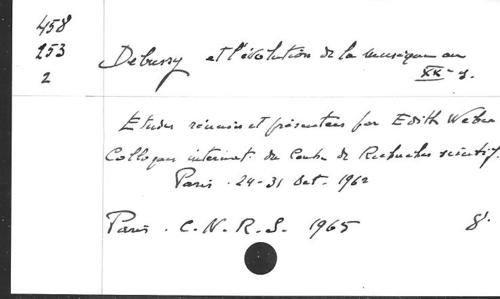 458
253
2
Debussy et l'évolution de la musique au
XXe s.
Etudes réunies et présentées par Edith Weber
Colloques internat. du Centre de Recherches scientif.
Paris. 24-31 Oct. 1962
Paris. C.N.R.S. 1965 8°.